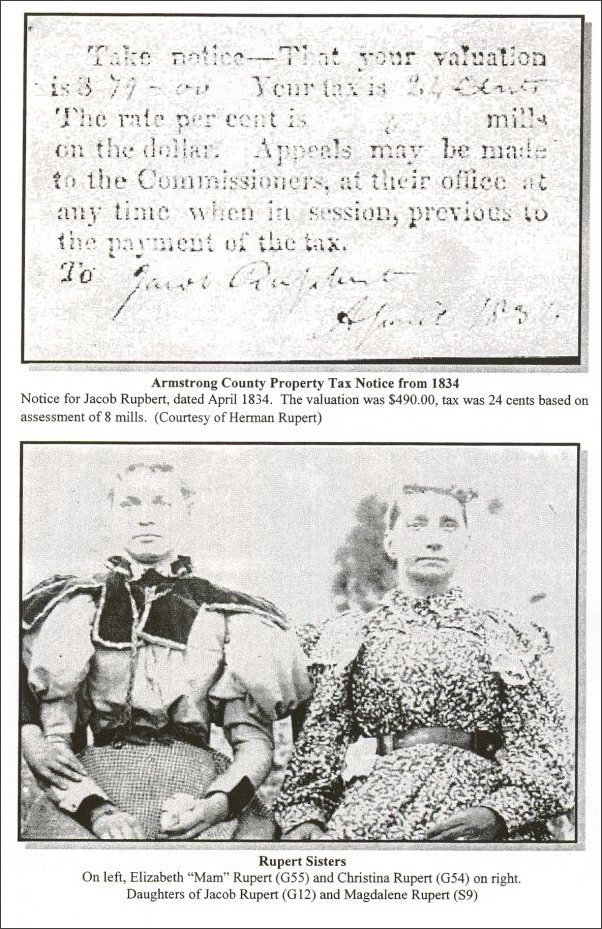 Take notice—That your valuation
is $ 79-00 Your tax is 24 Cents
The rate per cent is mills
on the dollar. Appeals may be made
to the Commissioners, at their office at
any time when in session, previous to
the payment of the tax.
To Jacob
April 1834.
Armstrong County Property Tax Notice from 1834
Notice for Jacob Rupbert, dated April 1834. The valuation was $490.00, tax was 24 cents based on
assessment of 8 mills. (Courtesy of Herman Rupert)
Rupert Sisters
On left, Elizabeth “Mam” Rupert (G55) and Christina Rupert (G54) on right.
Daughters of Jacob Rupert (G12) and Magdalene Rupert (S9)